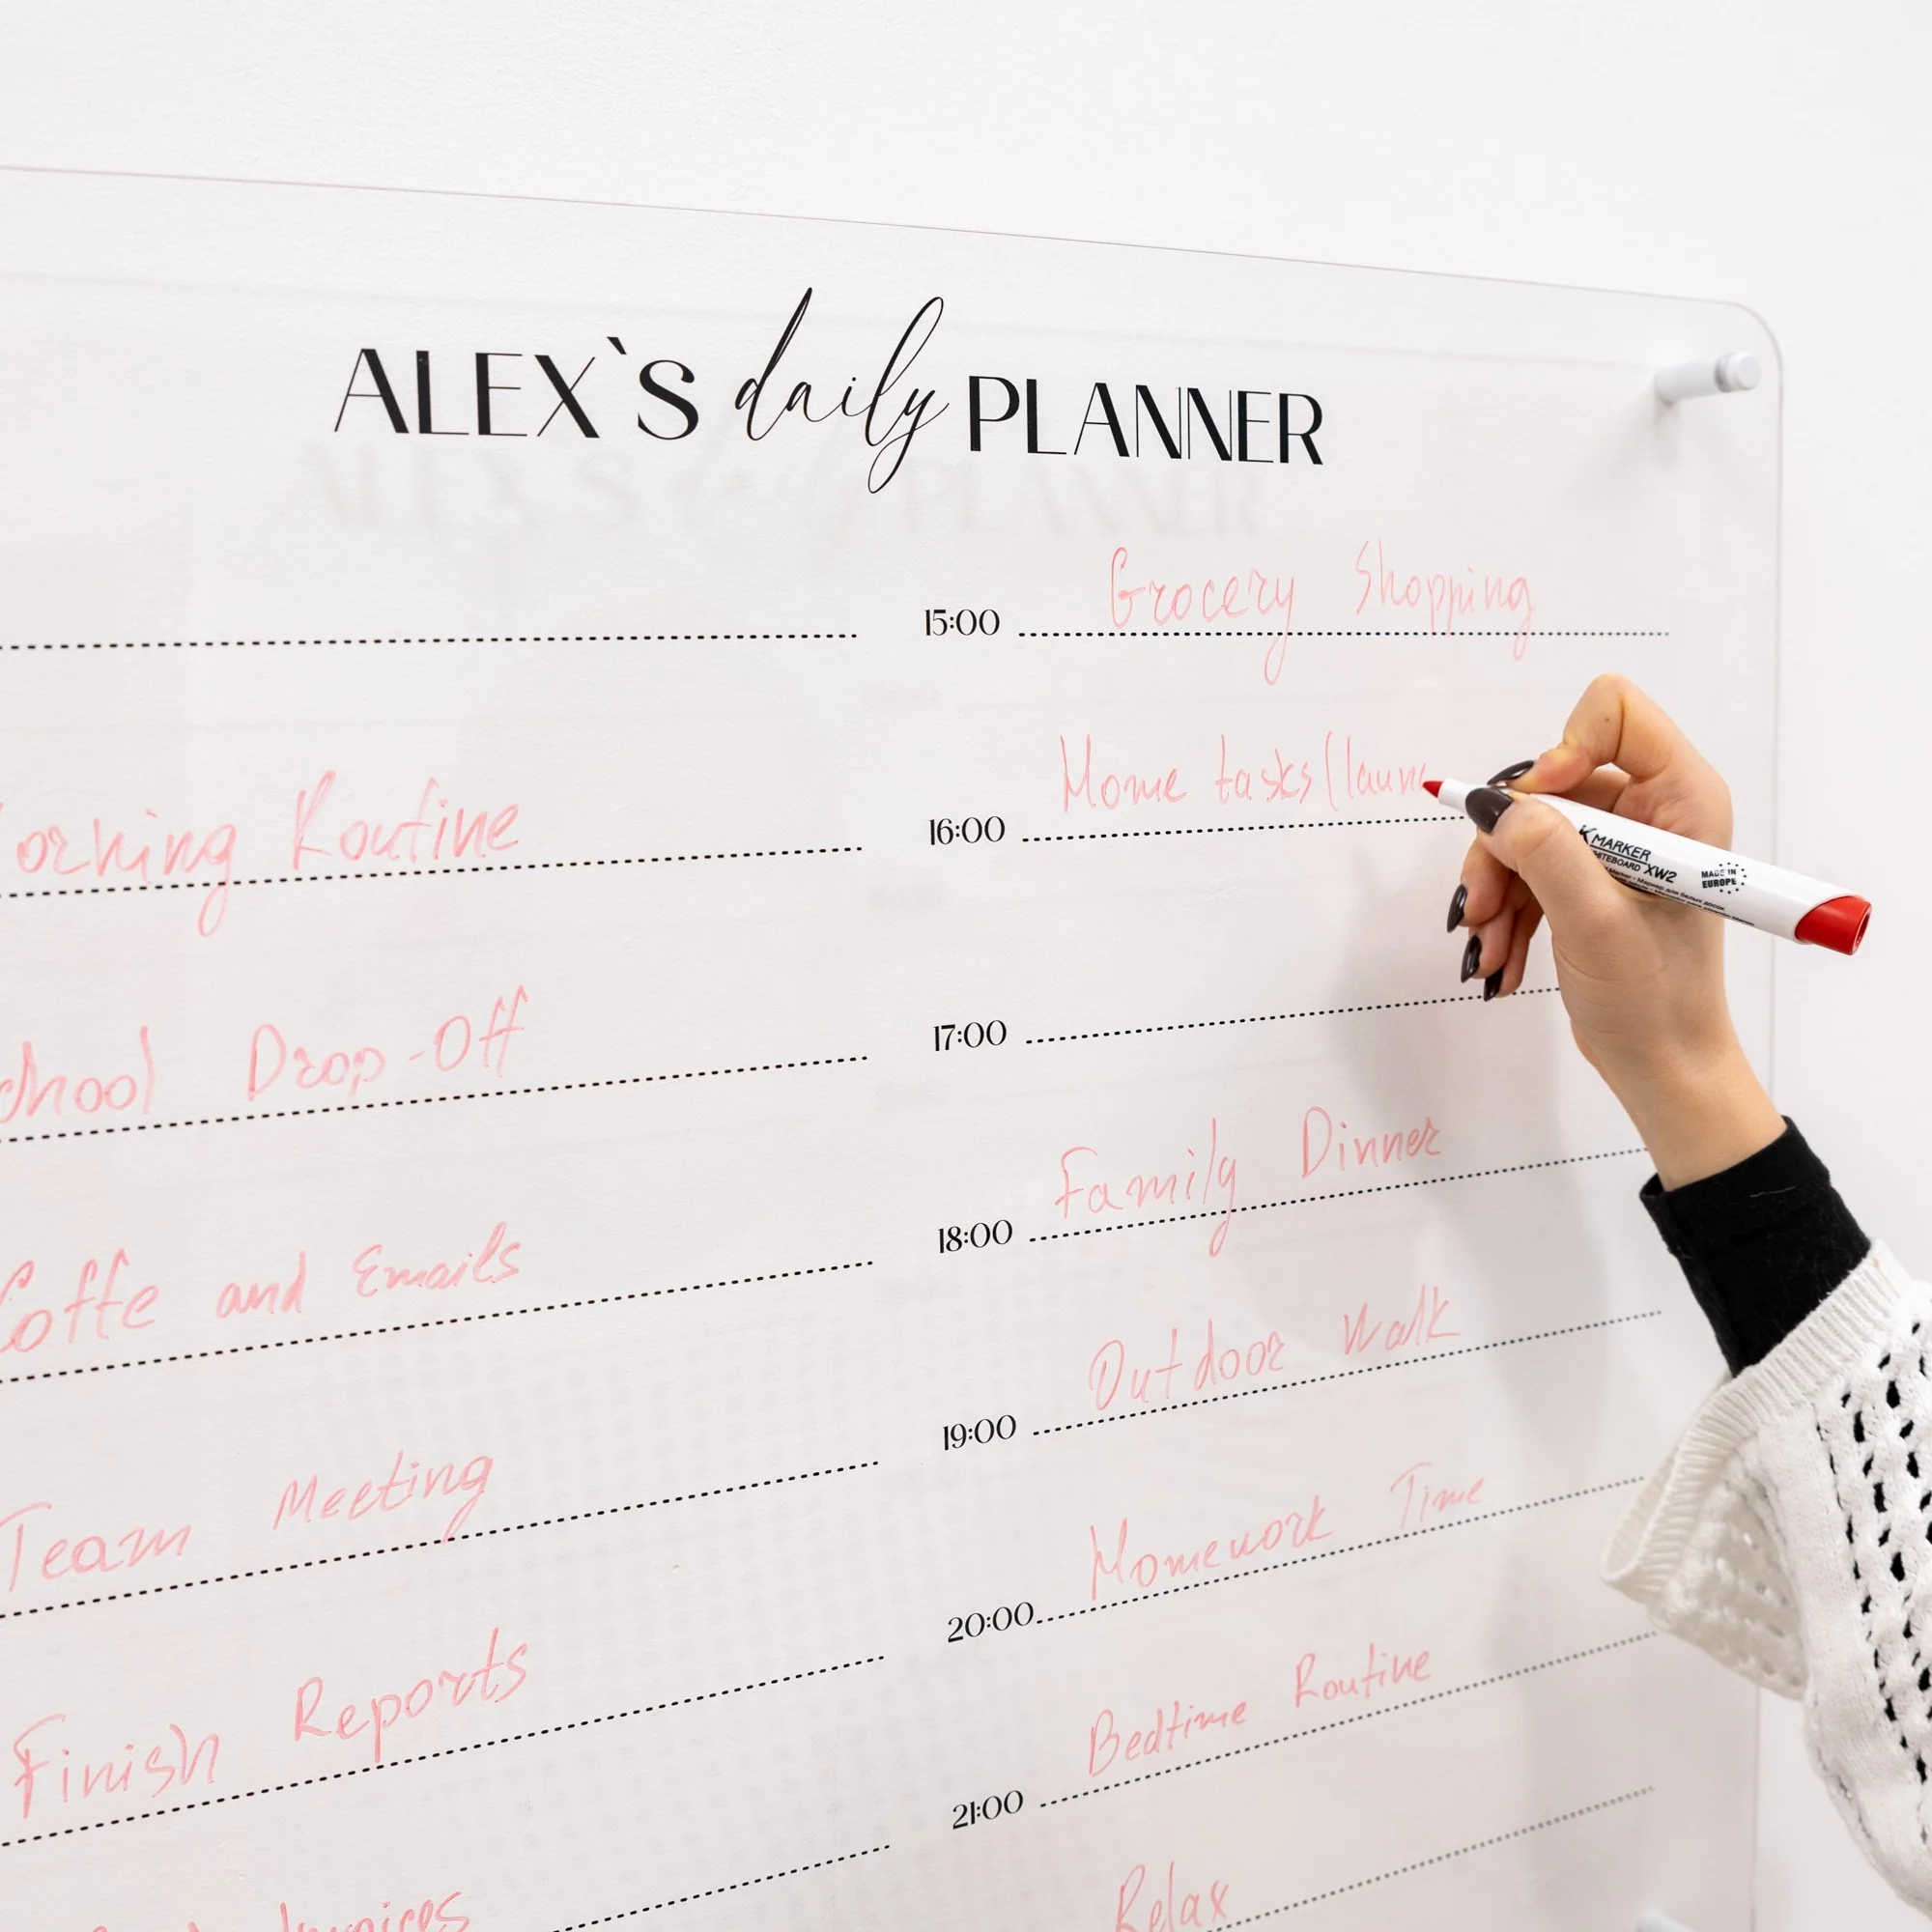 ALEX`S daily PLANNER
orning Routine
chool Drop-Off
Coffe and Emails
Team Meeting
Finish Reports
Invoices
15:00 Grocery Shopping
16:00 Home tasks (laun
17:00
18:00 Family Dinner
19:00 Outdoor Walk
20:00 Homework Time
21:00 Bedtime Routine
Relax
MARKER
WHITEBOARD XW2
MADE IN
EUROPE